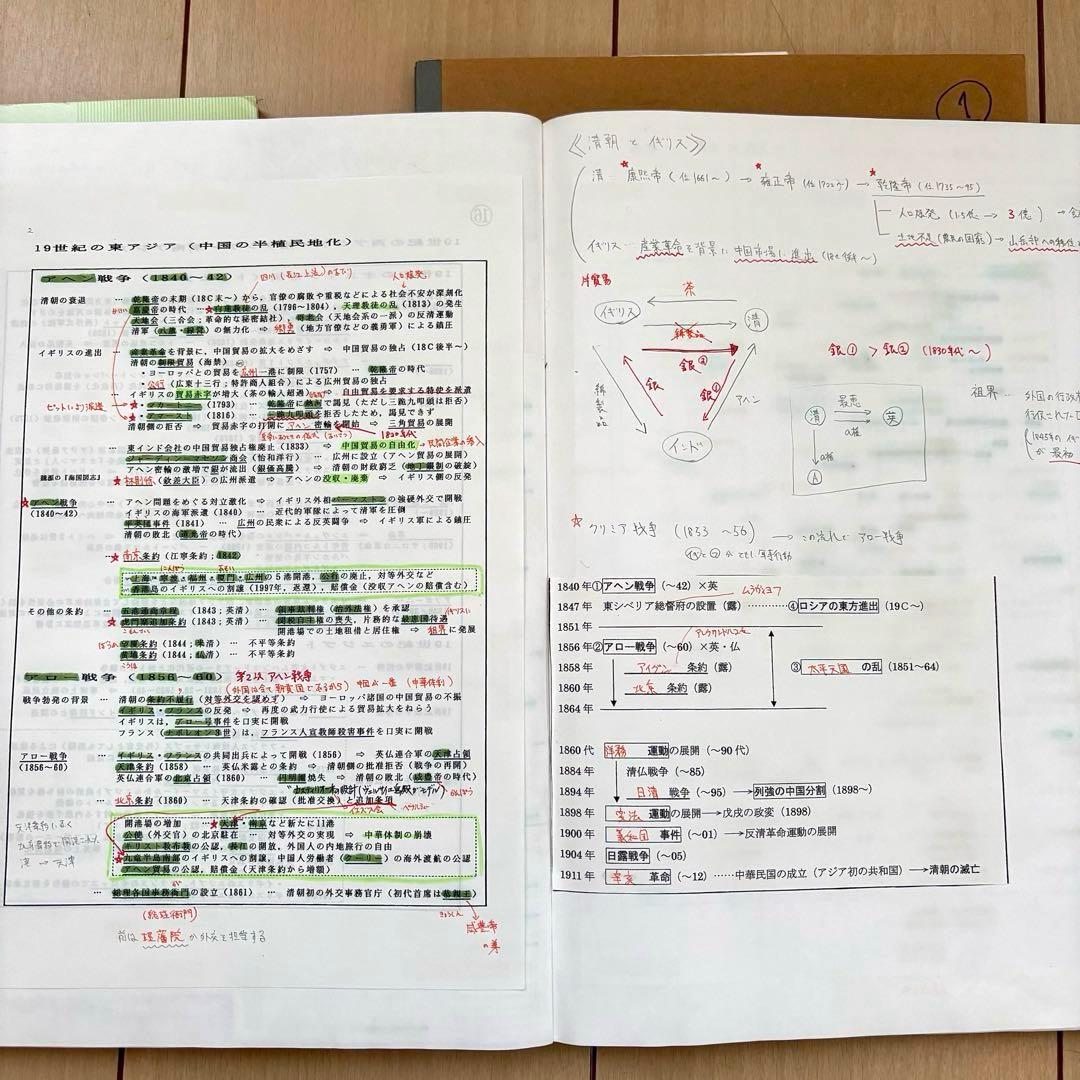 2
19世紀の東アジア(中国の半植民地化)
アヘン戦争(1840~42)
人口爆発
清朝の衰退 … 乾隆帝の末期(18C末~)から,官僚の腐敗や重税などによる社会不安が深刻化
嘉慶帝の時代 →★白蓮教徒の乱(1796~1804),天理教徒の乱(1813)の発生
天地会(三合会;革命的な秘密結社),哥老会(天地会系の一派)の反清運動
清軍(八旗・緑営)の無力化 ⇒ 郷勇(地方官僚などの義勇軍)による鎮圧
イギリスの進出 … 産業革命を背景に,中国貿易の拡大をめざす ⇒ 中国貿易の独占(18C後半~)
清朝の制限貿易(海禁)
・ヨーロッパとの貿易を広州一港に制限(1757) … 乾隆帝の時代
・公行(広東十三行;特許商人組合)による広州貿易の独占
イギリスの貿易赤字が増大(茶の輸入超過) ⇒ 自由貿易を要求する特使を派遣
ピットにより派遣
★マカートニー(1793) … 乾隆帝に熱河で謁見(ただし三跪九叩頭は拒否)
★アマースト(1816) … 三跪九叩頭を拒否したため,謁見できず
清朝側の拒否 ⇒ 貿易赤字の打開にアヘン密輸を開始 ⇒ 三角貿易の展開
1820年代
東インド会社の中国貿易独占権廃止(1833) ⇒ 中国貿易の自由化→民間企業の参入
ジャーディン=マセソン商会(怡和洋行) … 広州に設立(アヘン貿易の展開)
アヘン密輸の激増で銀が流出(銀価高騰) ⇒ 清朝の財政窮乏(地丁銀制の破綻)
魏源の『海国図志』 ★林則徐(欽差大臣)の広州派遣 ⇒ アヘンの没収・廃棄 ⇒ イギリス側の反発
★アヘン戦争 … アヘン問題をめぐる対立激化 ⇒ イギリス外相パーマストンの強硬外交で開戦
(1840~42) イギリスの海軍派遣(1840) … 近代的軍隊によって清軍を圧倒
平英団事件(1841) … 広州の民衆による反英闘争 ⇒ イギリス軍による鎮圧
清朝の敗北(道光帝の時代)
→★南京条約(江寧条約;1842)
上海・寧波・福州・厦門・広州の5港開港,公行の廃止,対等外交など
香港島のイギリスへの割譲(1997年,返還),賠償金(没収アヘンの賠償含む)
その他の条約 … 五港通商章程(1843;英清) … 領事裁判権(治外法権)を承認
★虎門寨追加条約(1843;英清) … 関税自主権の喪失,片務的な最恵国待遇
開港場での土地租借と居住権 ⇒ 租界に発展
望厦条約(1844;米清) … 不平等条約
黄埔条約(1844;仏清) … 不平等条約
アロー戦争(1856~60) 第2次アヘン戦争
戦争勃発の背景 … 清朝の条約不履行(対等外交を認めず) ⇒ ヨーロッパ諸国の中国貿易の不振
イギリス・フランスの反発 ⇒ 再度の武力行使による貿易拡大をねらう
イギリスは,アロー号事件を口実に開戦
フランス(ナポレオン3世)は,フランス人宣教師殺害事件を口実に開戦
アロー戦争 … イギリス・フランスの共同出兵によって開戦(1856) ⇒ 英仏連合軍の天津占領
(1856~60) 天津条約(1858) … 英仏米露との条約 ⇒ 清朝側の批准拒否(戦争の再開)
英仏連合軍の北京占領(1860) … 円明園焼失 ⇒ 清朝の敗北(咸豊帝の時代)
→北京条約(1860) … 天津条約の確認(批准交換)と追加条項
開港場の増加 …★天津・南京など新たに11港
公使(外交官)の北京駐在 … 対等外交の実現 ⇒ 中華体制の崩壊
キリスト教布教の公認,長江の開放,外国人の内地旅行の自由
★九竜半島南部のイギリスへの割譲,中国人労働者(クーリー)の海外渡航の公認
アヘン貿易の公認,賠償金(天津条約から増額)
総理各国事務衙門の設立(1861) … 清朝初の外交事務官庁(初代首席は恭親王)
(総理衙門)
前は理藩院が外交を担当する
咸豊帝
の弟
①
《清朝とイギリス》
清 … ★康熙帝(位1661~) → ★雍正帝(位1722~) → ★乾隆帝(位1735~95)
人口爆発(1.5億→3億)
土地不足(農民の困窮)→山岳部への移住
イギリス … 産業革命を背景に中国市場に進出
片貿易
茶
イギリス
清
綿製品
銀②
銀
銀①
アヘン
綿製品
インド
銀①>銀②(1830年代~)
祖界…外国の行政
最恵
清
英
a権
a権
A
★クリミア戦争(1853~56) → この流れでアロー戦争
1840年①アヘン戦争(~42)×英
ムラヴィヨフ
1847年 東シベリア総督府の設置(露)………④ロシアの東方進出(19C~)
1851年
1856年②アロー戦争(~60)×英・仏
1858年 アイグン条約(露) ③太平天国の乱(1851~64)
1860年 北京条約(露)
1864年
1860代 洋務運動の展開(~90代)
1884年 清仏戦争(~85)
1894年 日清戦争(~95)→列強の中国分割(1898~)
1898年 変法運動の展開→戊戌の政変(1898)
1900年 義和団事件(~01)→反清革命運動の展開
1904年 日露戦争(~05)
1911年 辛亥革命(~12)……中華民国の成立(アジア初の共和国)→清朝の滅亡